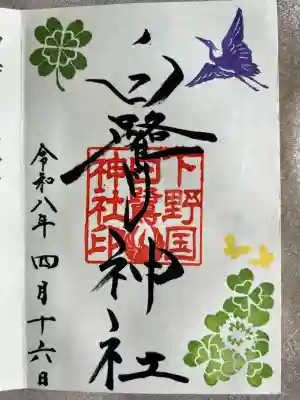 白鷺神社
下野国
白鷺
神社印
令和八年 四月十六日